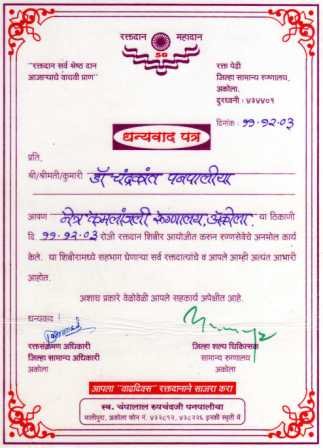 रक्तदान महादान
50
"रक्तदान सर्व श्रेष्ठ दान
आजाऱ्याचे वाचवी प्राण"
रक्त पेढी
जिल्हा सामान्य रुग्णालय,
अकोला.
दुरध्वनी : ४३४४०१
दिनांक : ११-१२.०३
धन्यवाद पत्र
प्रति,
श्री/श्रीमती/कुमारी डॉ चंद्रकांत पनपालीया
आपण नेत्र कमलांजली रुग्णालय, अकोला. या ठिकाणी
दि. ११-१२.०३ रोजी रक्तदान शिबीर आयोजीत करुन रुग्णसेवेचे अनमोल कार्य
केले. या शिबीरामध्ये सहभाग घेणाऱ्या सर्व रक्तदात्यांचे व आपले आम्ही अत्यंत आभारी
आहोत.
अशाच प्रकारे वेळोवेळी आपले सहकार्य अपेक्षीत आहे.
धन्यवाद
रक्तसंक्रमण अधिकारी
जिल्हा सामान्य अधिकारी
अकोला
जिल्हा शल्य चिकित्सक
सामान्य रुग्णालय
अकोला
आपला "वाढदिवस" रक्तदानाने साजरा करा
स्व. चंपालाल रुपचंदजी पनपालीया
मालीपुरा, अकोला फोन नं. ४३२८१२, ४३८२२६ इनकी स्मृती में